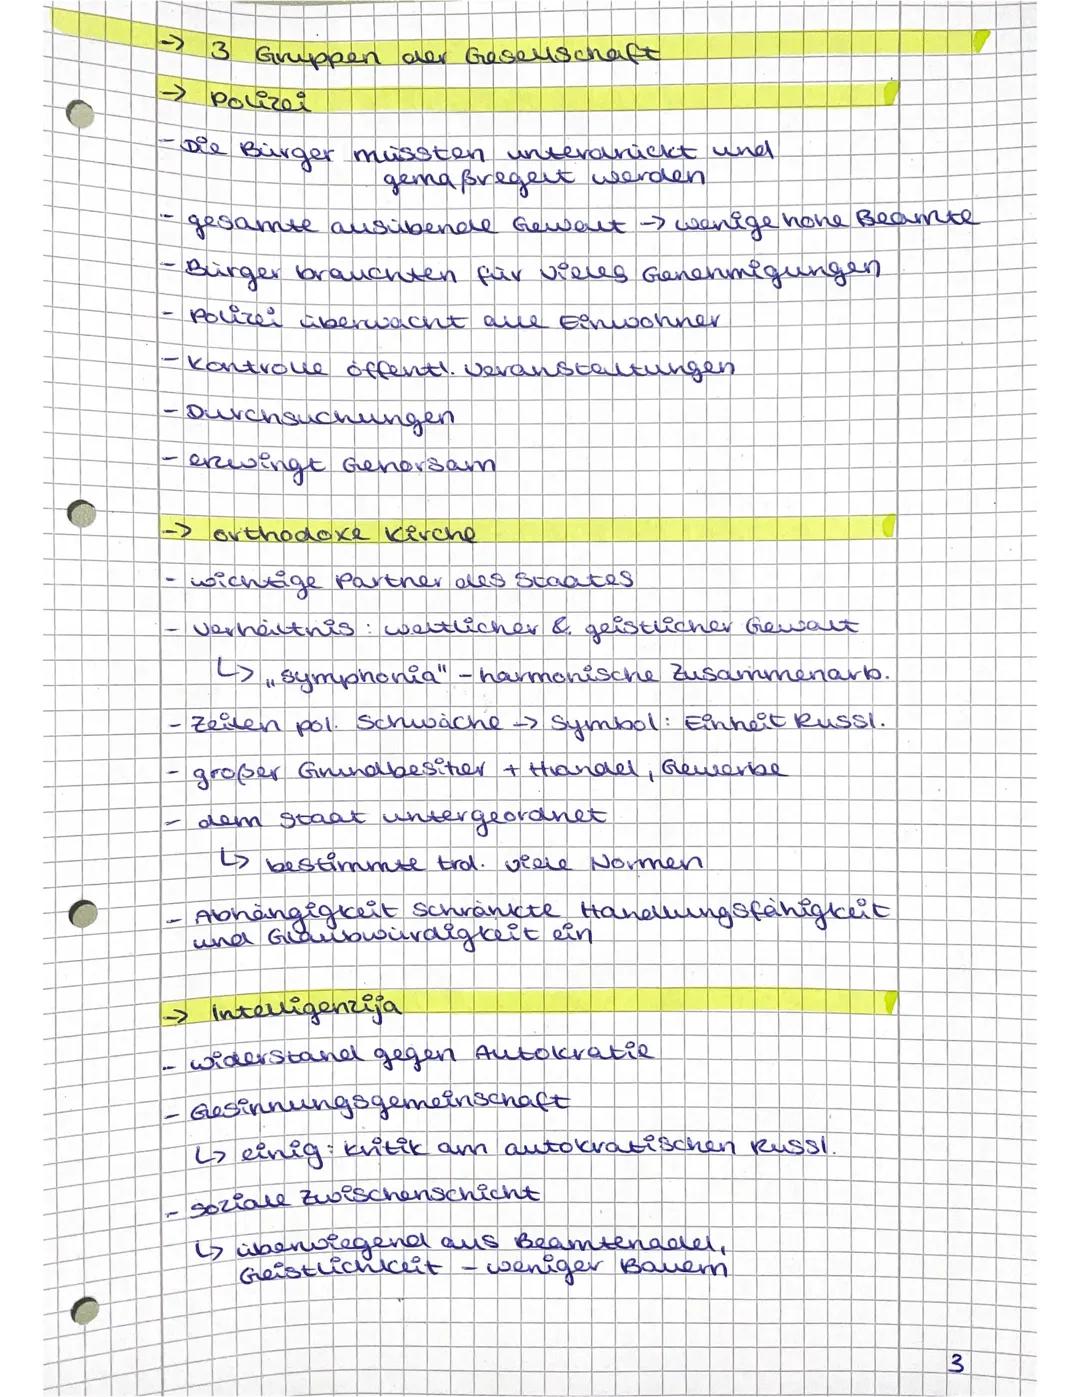 -> 3 Gruppen der Gesellschaft
-> Polizei
- Die Bürger müssten unterdrückt und
gemaßregelt werden
- gesamte ausübende Gewalt -> wenige hohe Beamte
- Bürger brauchten für vieles Genehmigungen
- Polizei überwacht alle Einwohner
- Kontrolle öffentl. Veranstaltungen
- Durchsuchungen
- erzwingt Gehorsam
-> orthodoxe Kirche
- wichtige Partner des Staates
- Verhältnis: weltlicher & geistlicher Gewalt
↳ „symphonia" - harmonische Zusammenarb.
- Zeiten pol. Schwäche -> Symbol: Einheit Russl.
- großer Grundbesitzer + Handel, Gewerbe
- dem Staat untergeordnet
↳ bestimmte trd. viele Normen
- Abhängigkeit schränkte Handlungsfähigkeit
und Glaubwürdigkeit ein
-> Intelligenzija
- Widerstand gegen Autokratie
- Gesinnungsgemeinschaft
↳ einig: Kritik am autokratischen Russl.
- soziale Zwischenschicht
↳ überwiegend aus Beamtenadel,
Geistlichkeit - weniger Bauern
3